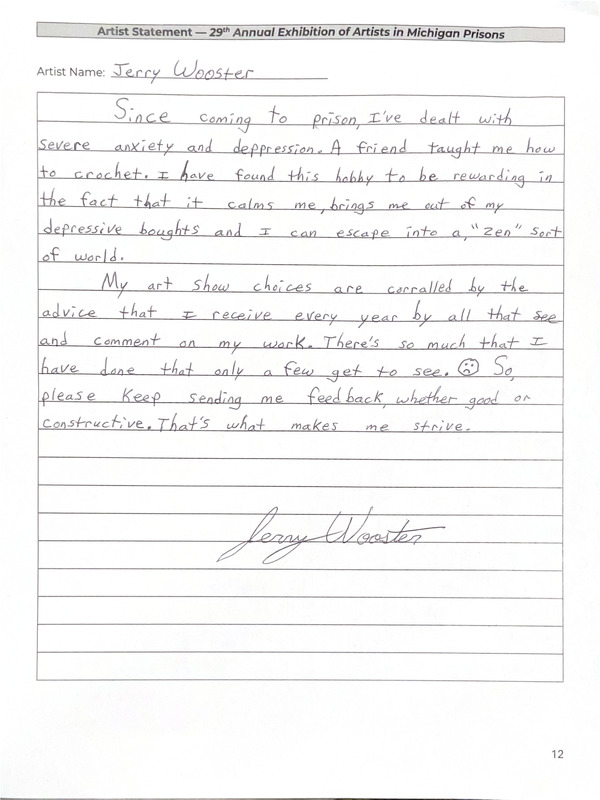 Artist Statement — 29th Annual Exhibition of Artists in Michigan Prisons
Artist Name: Jerry Wooster
Since coming to prison, I've dealt with
severe anxiety and deppression. A friend taught me how
to crochet. I have found this hobby to be rewarding in
the fact that it calms me, brings me out of my
depressive boughts and I can escape into a "zen" sort
of world.
My art show choices are corralled by the
advice that I receive every year by all that see
and comment on my work. There's so much that I
have done that only a few get to see. ☹ So,
please keep sending me feedback, whether good or
constructive. That's what makes me strive.
Jerry Wooster
12